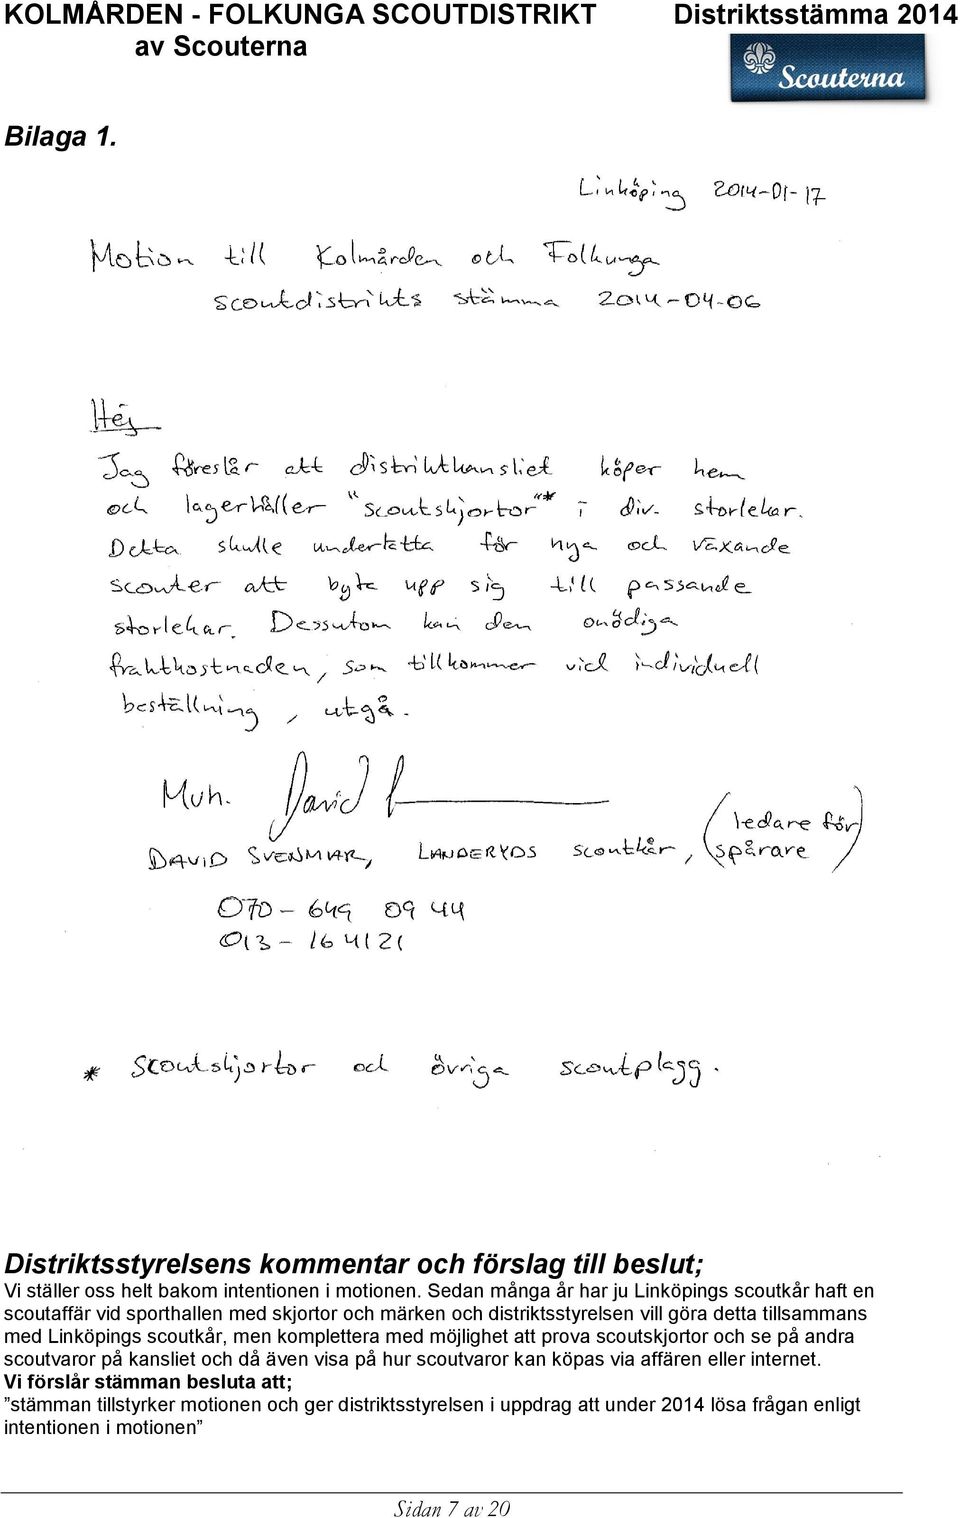 KOLMÅRDEN - FOLKUNGA SCOUTDISTRIKT Distriktsstämma 2014
av Scouterna
Scouterna
Bilaga 1.
Linköping 2014-01-17
Motion till Kolmården och Folkunga
scoutdistrikts stämma 2014-04-06
Hej
Jag föreslår att distriktkansliet köper hem
och lagerhåller "scoutskjortor"* i div. storlekar.
Detta skulle underlätta för nya och växande
scouter att byta upp sig till passande
storlekar. Dessutom kan den onödiga
fraktkostnaden, som tillkommer vid individuell
beställning, utgå.
Mvh. David
DAVID SVENMAR, LANDERYDS scoutkår, (ledare för spårare)
070-649 09 44
013-164121
* Scoutskjortor och övriga scoutplagg.
Distriktsstyrelsens kommentar och förslag till beslut;
Vi ställer oss helt bakom intentionen i motionen. Sedan många år har ju Linköpings scoutkår haft en
scoutaffär vid sporthallen med skjortor och märken och distriktsstyrelsen vill göra detta tillsammans
med Linköpings scoutkår, men komplettera med möjlighet att prova scoutskjortor och se på andra
scoutvaror på kansliet och då även visa på hur scoutvaror kan köpas via affären eller internet.
Vi förslår stämman besluta att;
”stämman tillstyrker motionen och ger distriktsstyrelsen i uppdrag att under 2014 lösa frågan enligt
intentionen i motionen”
Sidan 7 av 20